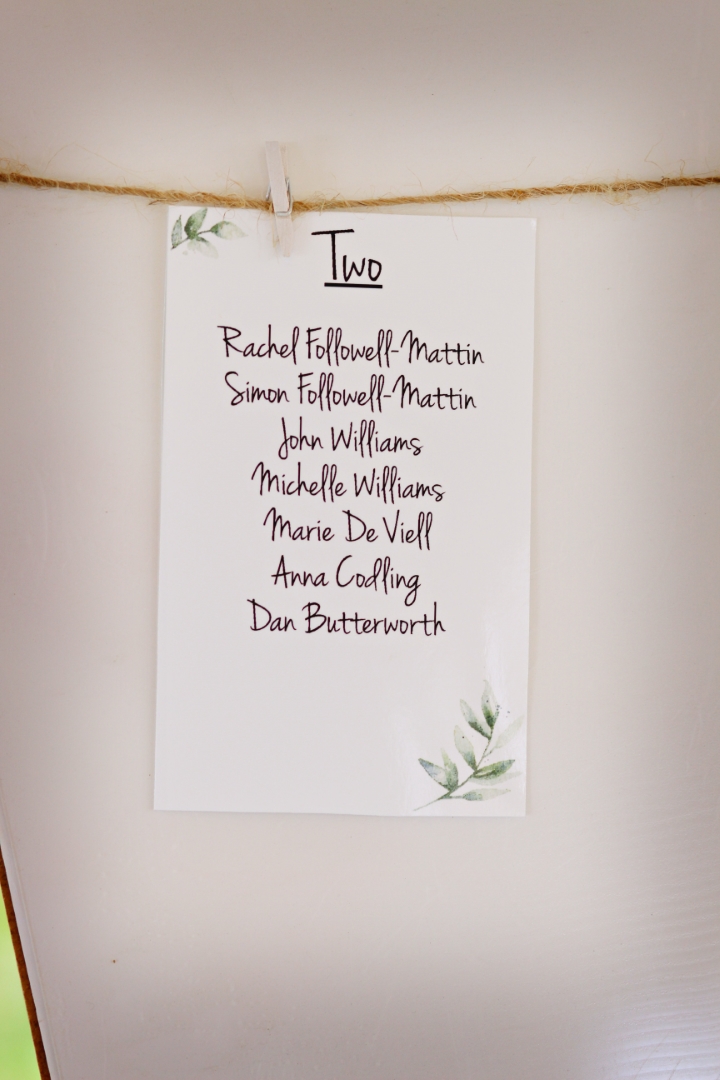 Two
Rachel Followell-Mattin
Simon Followell-Mattin
John Williams
Michelle Williams
Marie De Viell
Anna Codling
Dan Butterworth